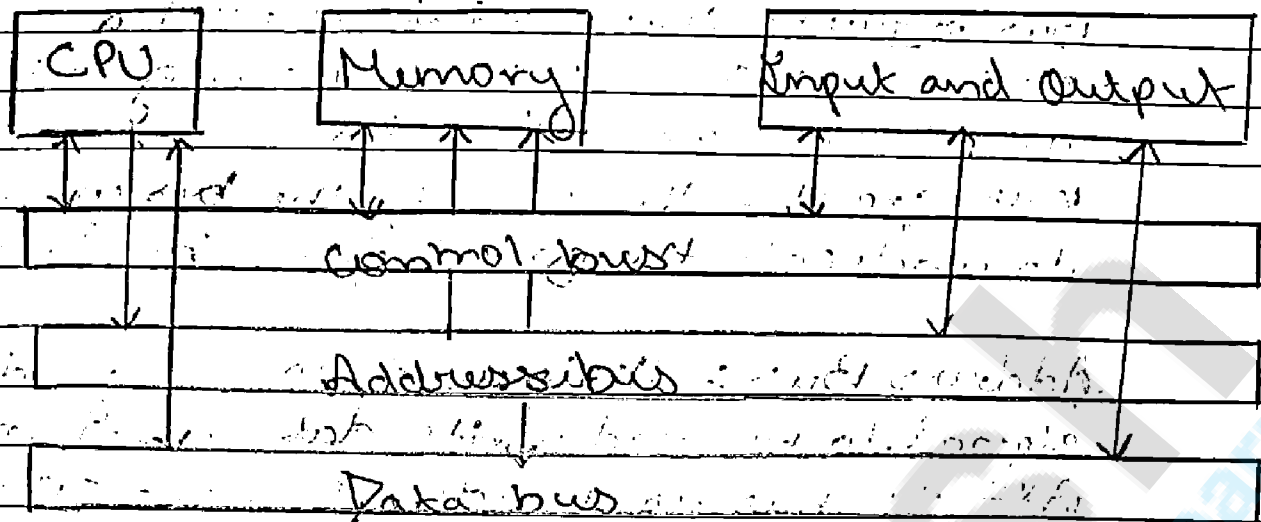 CPU
Mumory
Input and Output
Control bus
Address bus
Data bus